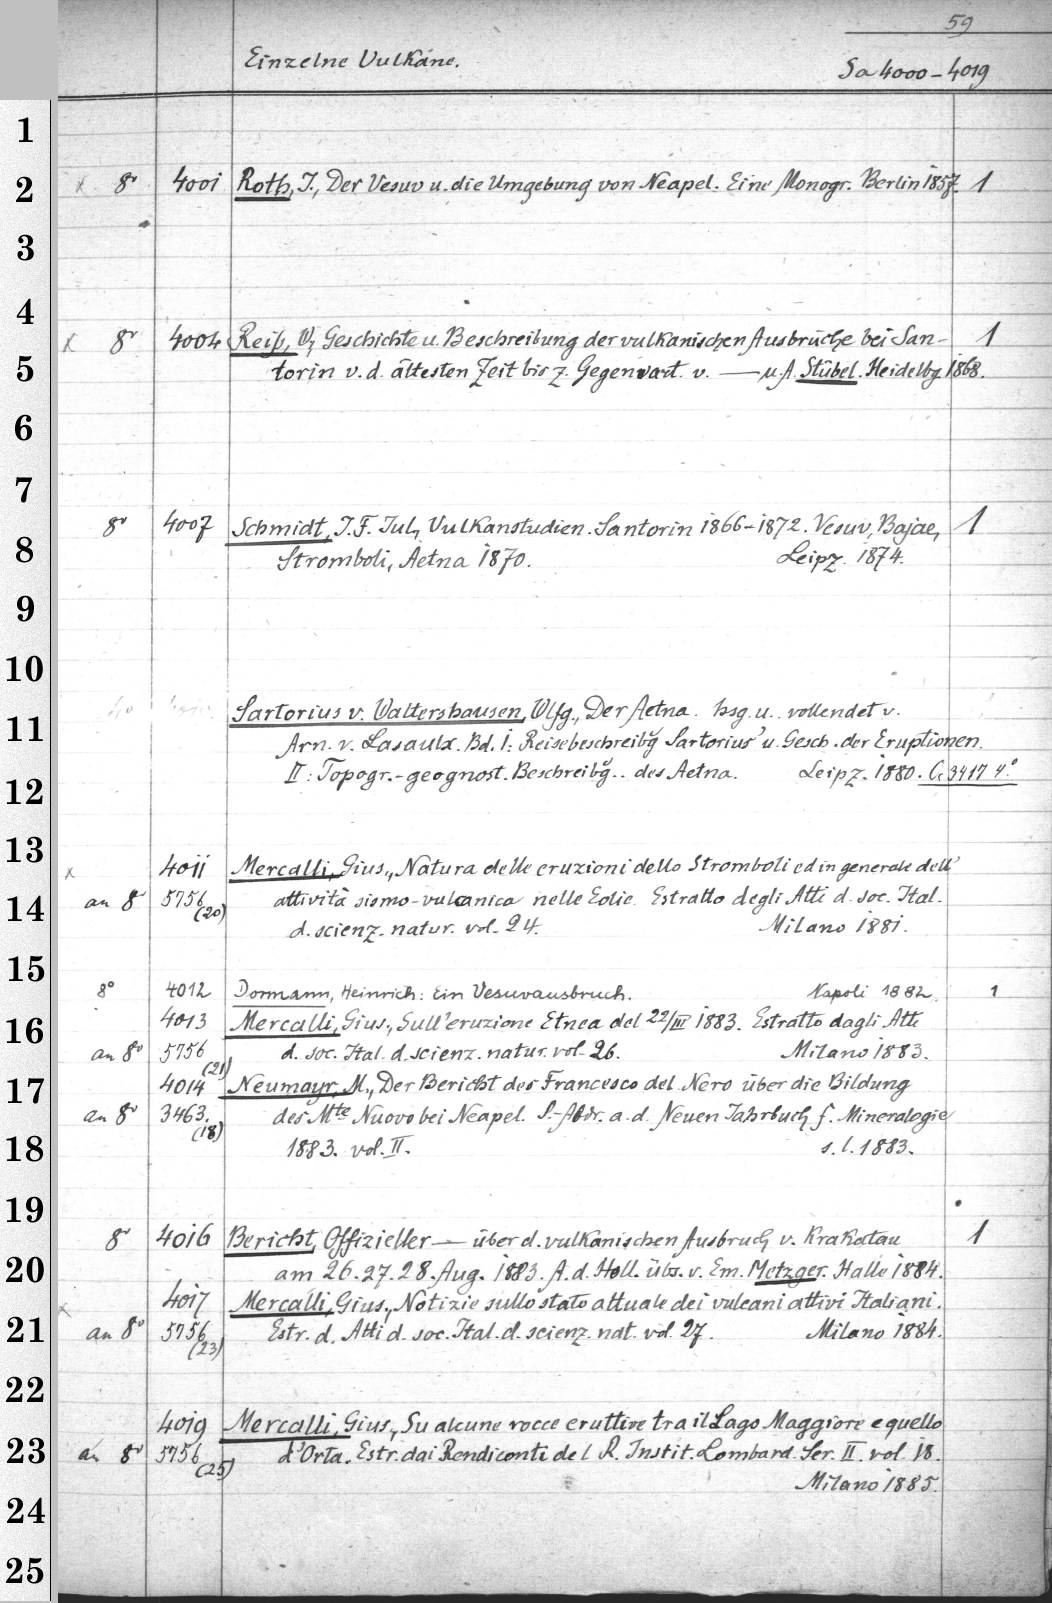 59
Einzelne Vulkane.
Sa 4000-4019
1
2 x 8° 4001 Roth, J., Der Vesuv u. die Umgebung von Neapel. Eine Monogr. Berlin 1857. 1
3
4
x 8° 4004 Reiß, W., Geschichte u. Beschreibung der vulkanischen Ausbrüche bei San- 1
5 torin v. d. ältesten Zeit bis z. Gegenwart. v. — u. A. Stübel. Heidelbg. 1868.
6
7
8° 4007 Schmidt, J. F. Jul., Vulkanstudien. Santorin 1866-1872. Vesuv, Bajae, 1
8 Stromboli, Aetna 1870. Leipz. 1874.
9
10
11 Sartorius v. Waltershausen, Wlfg., Der Aetna. hsg. u. vollendet v.
Arn. v. Lasaulx. Bd. I: Reisebeschreibg Sartorius' u. Gesch. der Eruptionen.
12 II: Topogr.-geognost. Beschreibg. des Aetna. Leipz. 1880. G 3417 4°
13
x 4011 Mercalli, Gius., Natura delle eruzioni dello Stromboli ed in generale dell'
14 an 8° 5756 (20) attività sismo-vulcanica nelle Eolie. Estratto degli Atti d. soc. Ital.
d. scienz. natur. vol. 24. Milano 1881.
15
8° 4012 Dormann, Heinrich: Ein Vesuvausbruch. Napoli 1882. 1
16 4013 Mercalli, Gius., Sull'eruzione Etnea del 22/III 1883. Estratto dagli Atti
an 8° 5756 (21) d. soc. Ital. d. scienz. natur. vol. 26. Milano 1883.
17 4014 Neumayr, M., Der Bericht des Francesco del Nero über die Bildung
an 8° 3463. (18) des Mte Nuovo bei Neapel. S.-Abdr. a. d. Neuen Jahrbuch f. Mineralogie
18 1883. vol. II. s. l. 1883.
19
8° 4016 Bericht, Offizieller — über d. vulkanischen Ausbruch v. Krakatau 1
20 am 26. 27. 28. Aug. 1883. A. d. Holl. übs. v. Em. Metzger. Halle 1884.
x 4017 Mercalli, Gius., Notizie sullo stato attuale dei vulcani attivi Italiani.
21 an 8° 5756 (23) Estr. d. Atti d. soc. Ital. d. scienz. nat. vol. 27. Milano 1884.
22
4019 Mercalli, Gius., Su alcune rocce eruttive tra il Lago Maggiore e quello
23 an 8° 5756 (25) d'Orta. Estr. dai Rendiconti del R. Instit. Lombard. Ser. II. vol. 18.
Milano 1885.
24
25